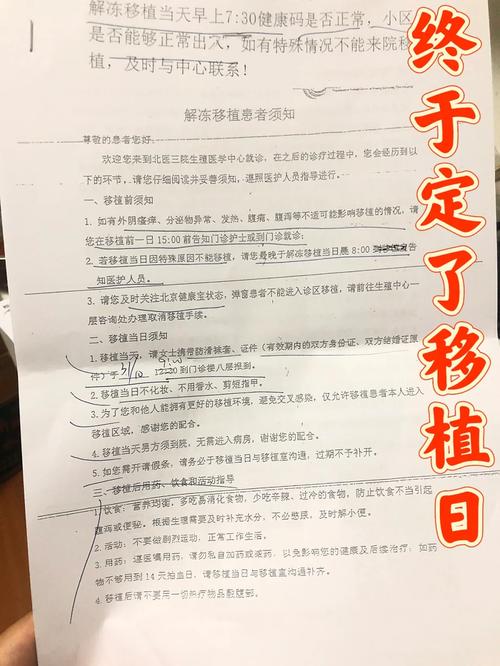 解冻移植当天早上7:30健康码是否正常，小区
是否能够正常出入，如有特殊情况不能来院移
植，及时与中心联系！
解冻移植患者须知
尊敬的患者您好：
欢迎您来到北医三院生殖医学中心就诊，在之后的诊疗过程中，您会经历到以
下的环节，请您仔细阅读并妥善须知，遵照医护人员指导进行。
一、移植前须知
1. 如有外阴瘙痒、分泌物异常、发热、腹痛、腹泻等不适可能影响移植的情况，请
您在移植前一日 15:00 前告知门诊护士或到门诊就诊；
2. 若移植当日因特殊原因不能移植，请您最晚于解冻移植当日晨 8:00
知医护人员。
3. 请您及时关注北京健康宝状态，弹窗患者不能进入诊区移植，请前往生殖中心一
层咨询处办理取消移植手续。
二、移植当日须知
1. 移植当天，请女士携带防滑袜套、证件（有效期内的双方身份证、双方结婚证原
件）于 31/10 到门诊楼八层报到。
2. 移植当日不化妆、不用香水、剪短指甲。
3. 为了您和他人能拥有更好的移植环境，避免交叉感染，仅允许移植患者本人进入
移植区域，感谢您的配合。
4. 移植当天男方须到院，无需进入病房，谢谢您的配合。
5. 如您需开请假条，请务必于移植当日与移植室沟通，过期不予补开。
三、移植后用药、饮食和活动指导
1. 饮食：营养均衡，多吃易消化食物，少吃辛辣、过冷的食物，防止饮食不当引起
腹泻或便秘。根据生理需要及时补充水分，不必憋尿，及时解小便。
2. 活动：不要做剧烈运动，正常工作生活。
3. 用药：遵医嘱用药，请勿私自加药或减药，以免影响您的健康及后续治疗；如药
物不够用到 14 天抽血日，请移植当日与移植室沟通补齐。
4. 移植后请不要用一切热疗物品敷腹部。
终于定了移植日